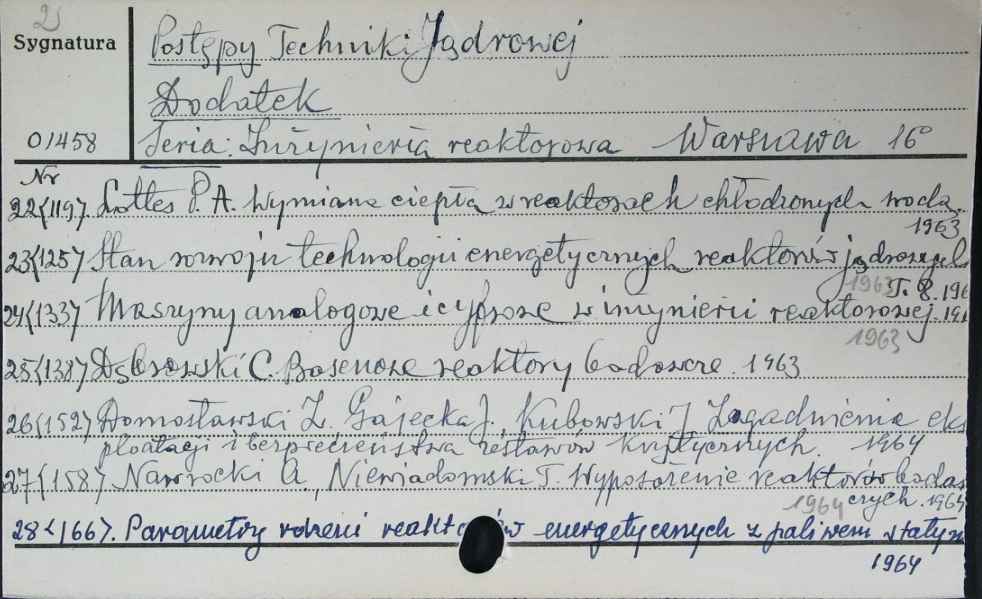 2
Sygnatura
Postępy Techniki Jądrowej
Dodatek
01458
Seria: Inżynieria reaktorowa Warszawa 16°
Nr
22<119>. Lottes P. A. Wymiana ciepła w reaktorach chłodzonych wodą.
1963
23<125> Stan rozwoju technologii energetycznych reaktorów jądrowych
1963 T. 8. 196
24<133> Maszyny analogowe i cyfrowe w inżynierii reaktorowej. 196
1963
25<138> Dąbrowski C. Basenowe reaktory badawcze. 1963
26<152> Domosławski Z. Gajecka J., Kubowski J. Zagadnienia eks
ploatacji i bezpieczeństwa zestawów krytycznych. 1964
27<158> Nawrocki A., Niewiadomski T. Wyposażenie reaktorów badaw
1964 czych. 1964
28<166>. Parametry rdzeni reaktorów energetycznych z paliwem statyw
1964